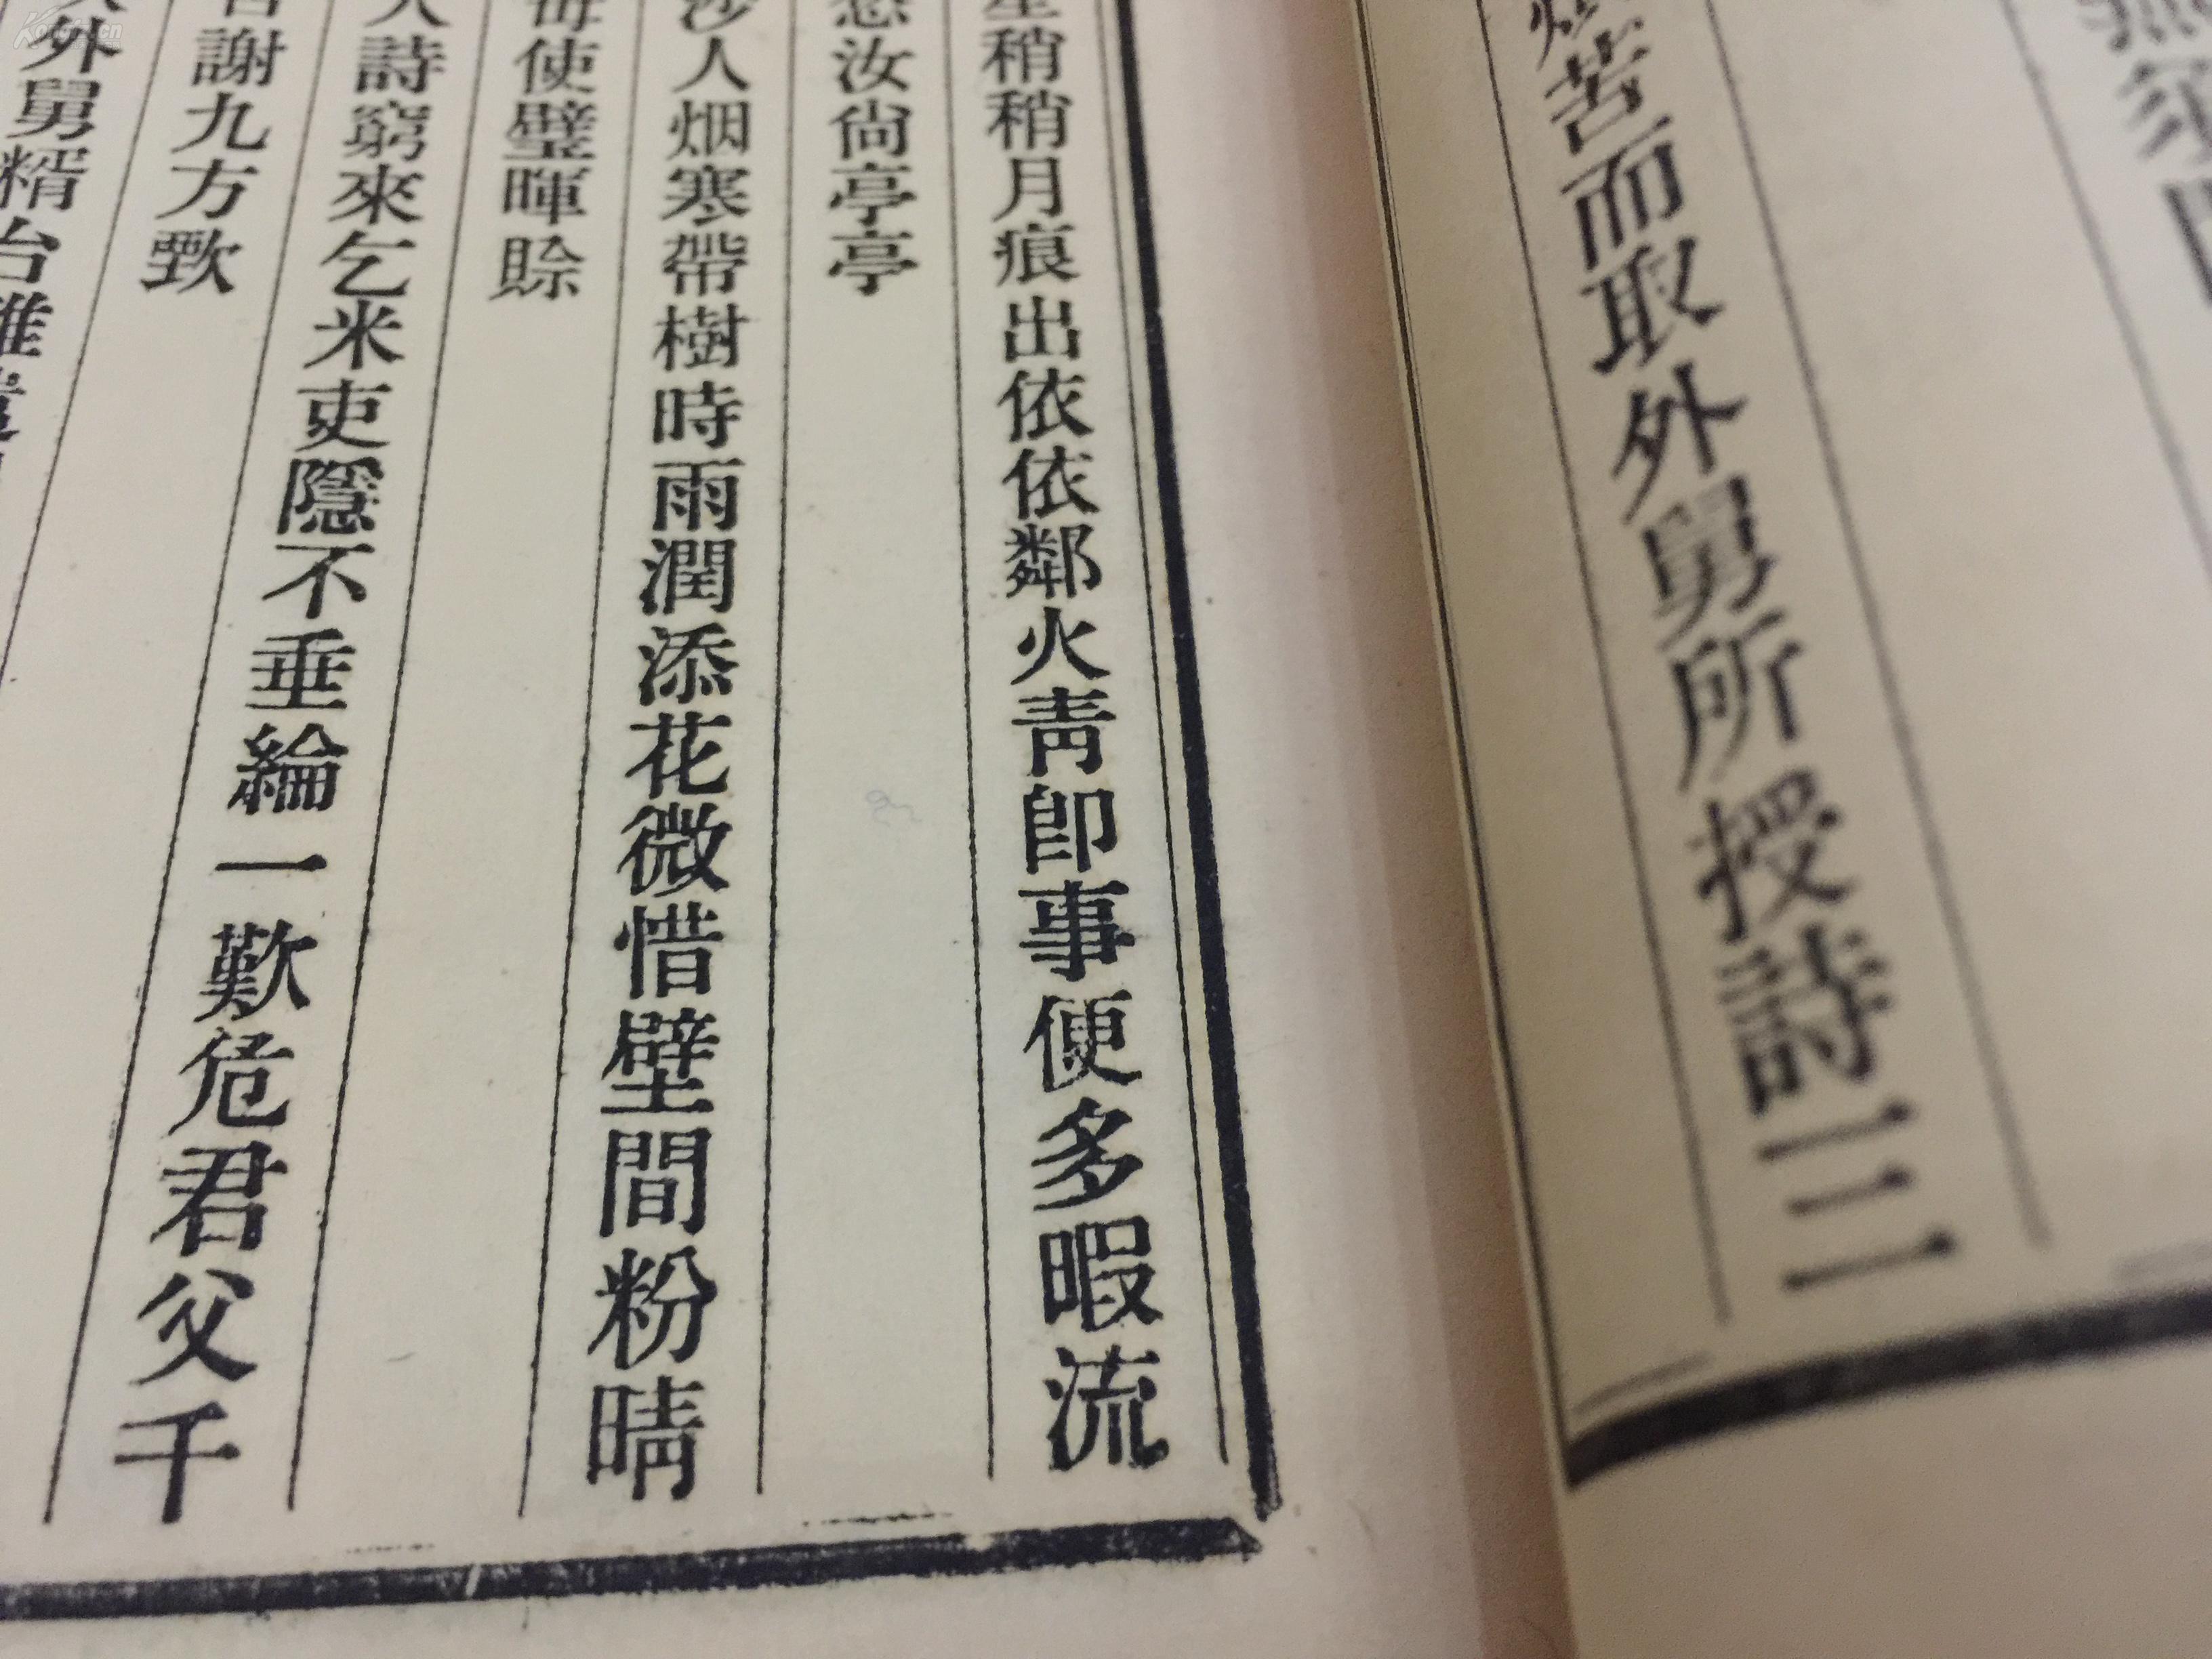 苦而取外舅所授詩三
稍稍月痕出依依鄰火青卽事便多暇流
汝尙亭亭
沙人烟寒帶樹時雨潤添花微惜壁間粉晴
毋使壁暉賒
人詩窮來乞米吏隱不垂綸一歎危君父千
謝九方歅
外舅糈台雖